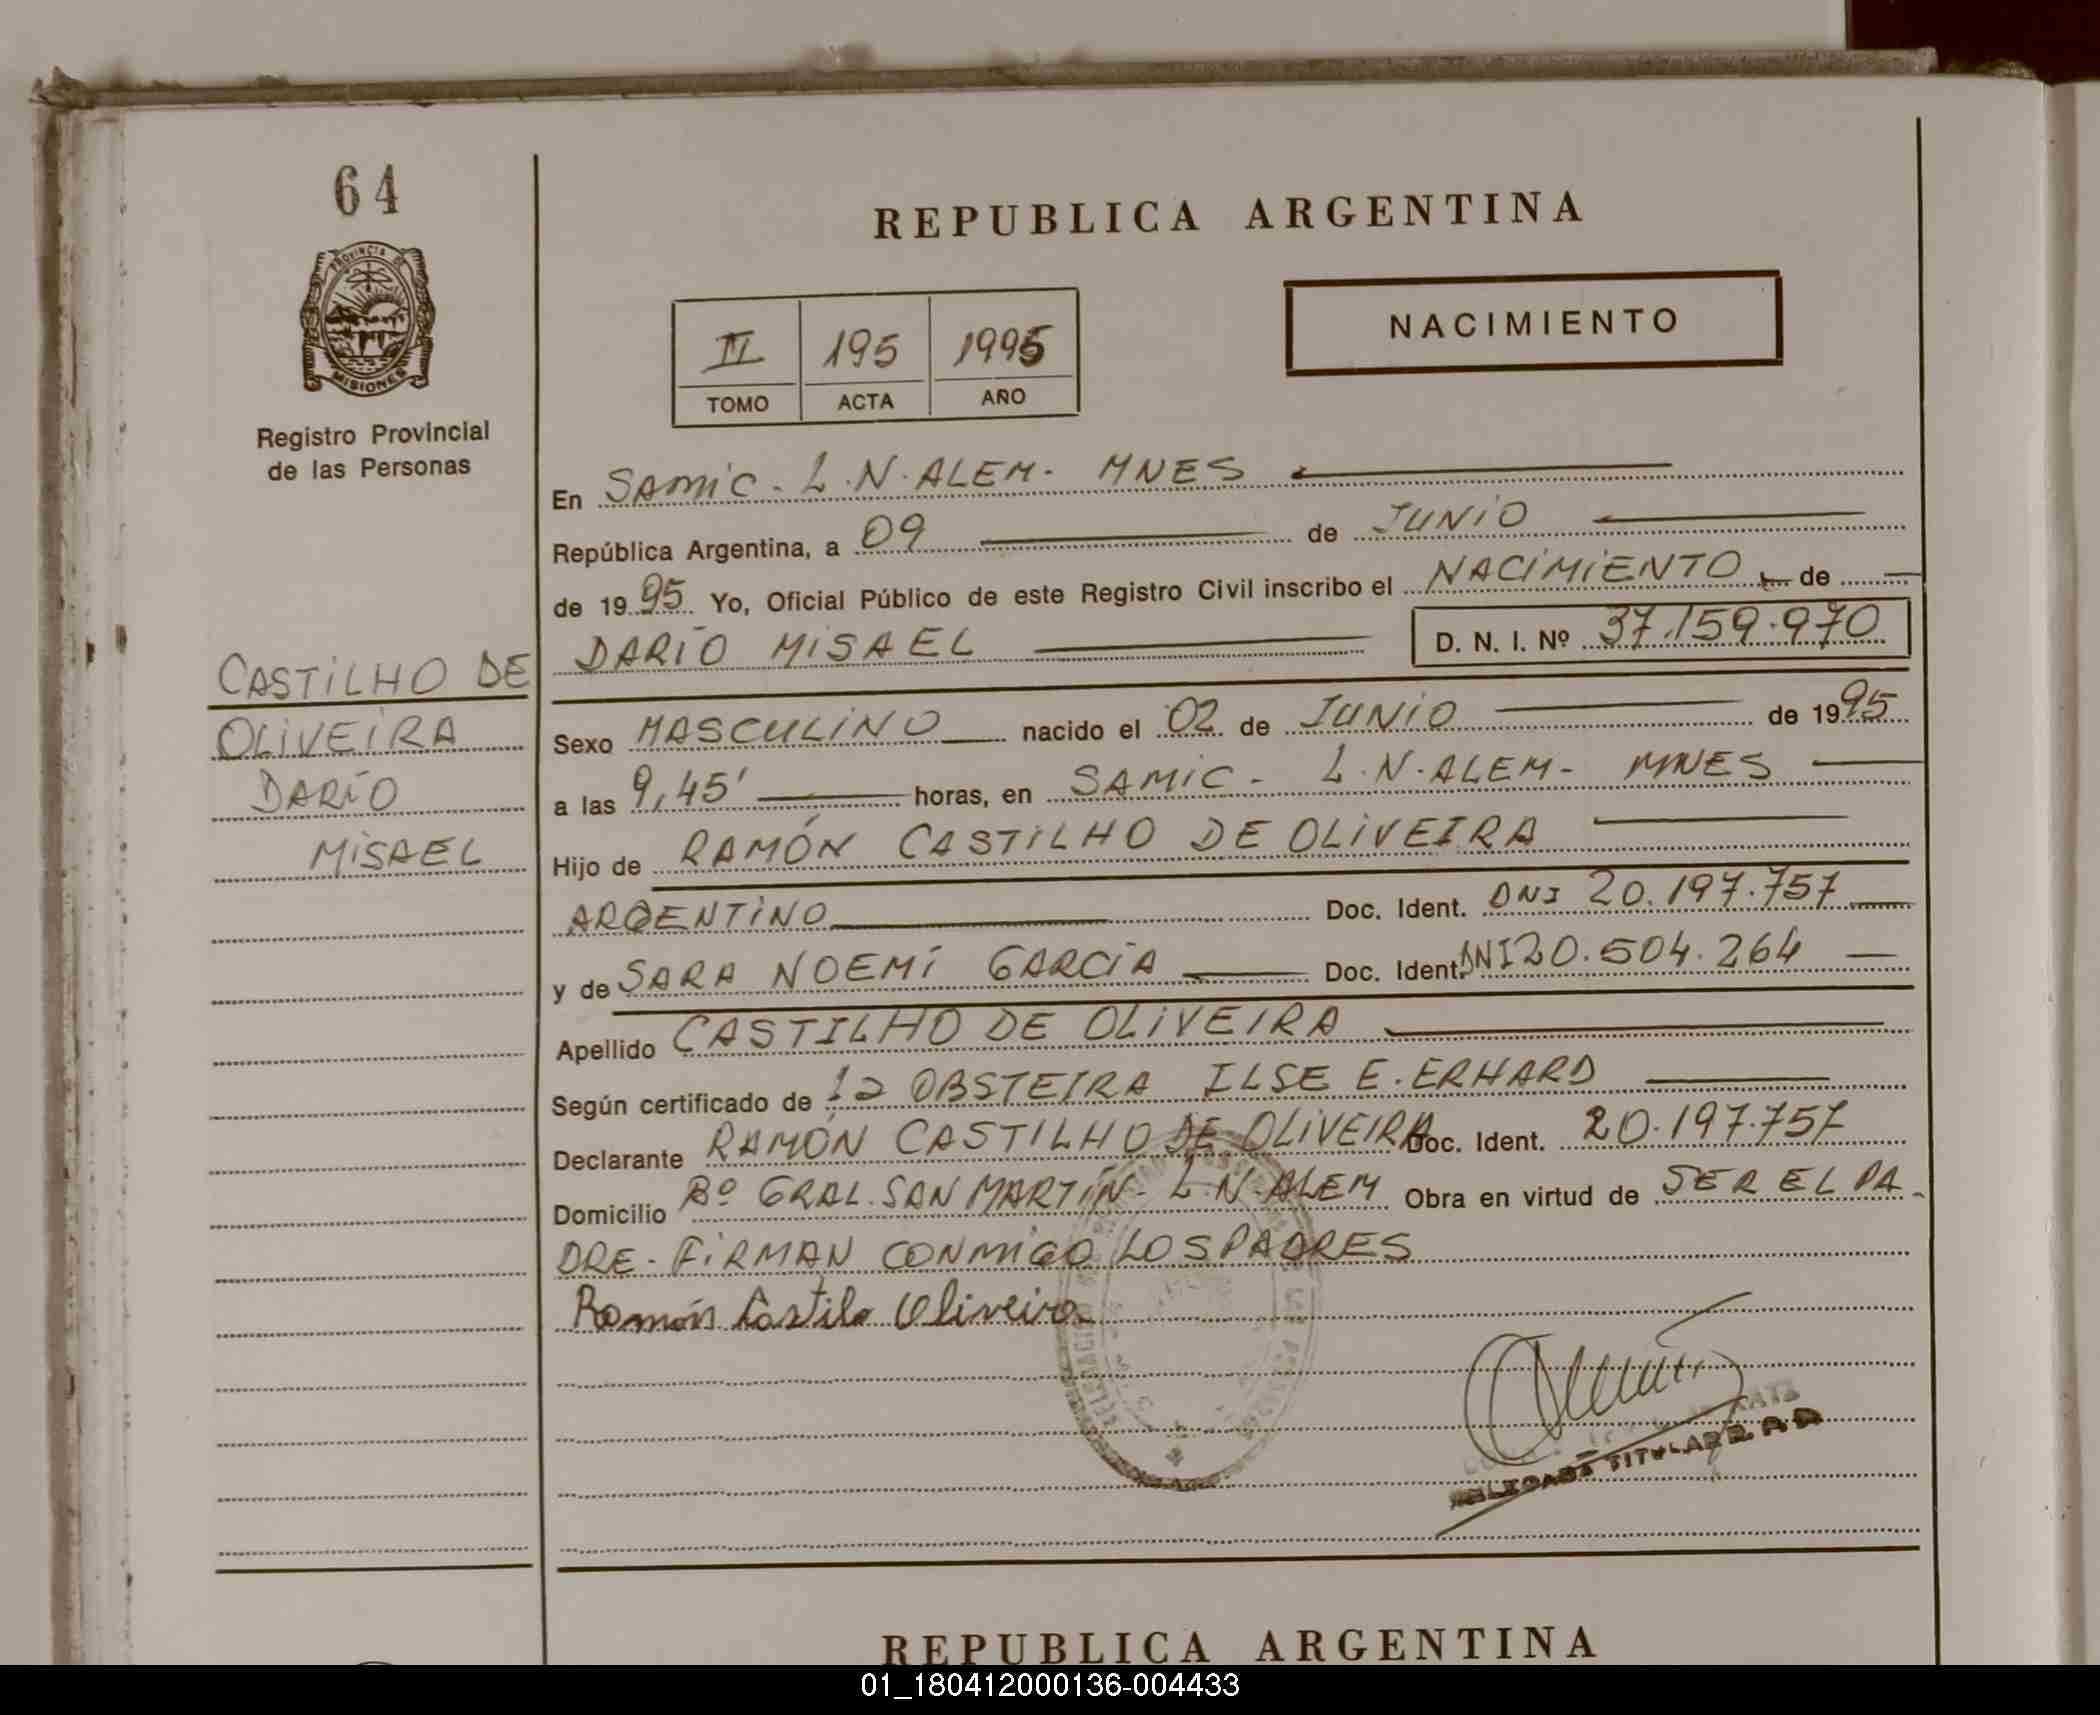 64
PROVINCIA DE
MISIONES
Registro Provincial
de las Personas
CASTILHO DE
OLIVEIRA
DARÍO
MISAEL
REPUBLICA ARGENTINA
II 195 1995
TOMO ACTA AÑO
NACIMIENTO
En SAMIC - L.N. ALEM - MNES
República Argentina, a 09 de JUNIO
de 1995 Yo, Oficial Público de este Registro Civil inscribo el NACIMIENTO de
DARÍO MISAEL D. N. I. Nº 37.159.970
Sexo MASCULINO nacido el 02 de JUNIO de 1995
a las 9,45' horas, en SAMIC - L.N. ALEM - MNES
Hijo de RAMÓN CASTILHO DE OLIVEIRA
ARGENTINO Doc. Ident. DNI 20.197.757
y de SARA NOEMÍ GARCÍA Doc. Ident. DNI 20.504.264
Apellido CASTILHO DE OLIVEIRA
Según certificado de la OBSTEIRA ILSE E. ERHARD
Declarante RAMÓN CASTILHO DE OLIVEIRA Doc. Ident. 20.197.757
Domicilio Bº GRAL. SAN MARTÍN - L.N. ALEM Obra en virtud de SER EL PA-
DRE - FIRMAN CONMIGO LOS PADRES
Ramón Castilo Oliveira
TITULAR
REPUBLICA ARGENTINA
01_180412000136-004433